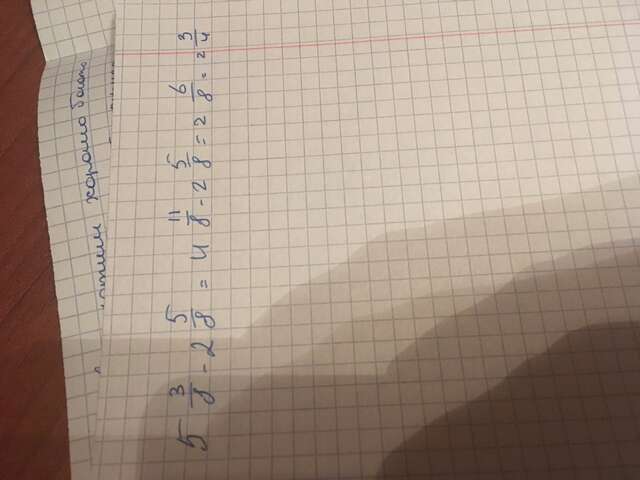 хорошо
5 3/8 - 2 5/8 = 4 11/8 - 2 5/8 = 2 6/8 = 2 3/4